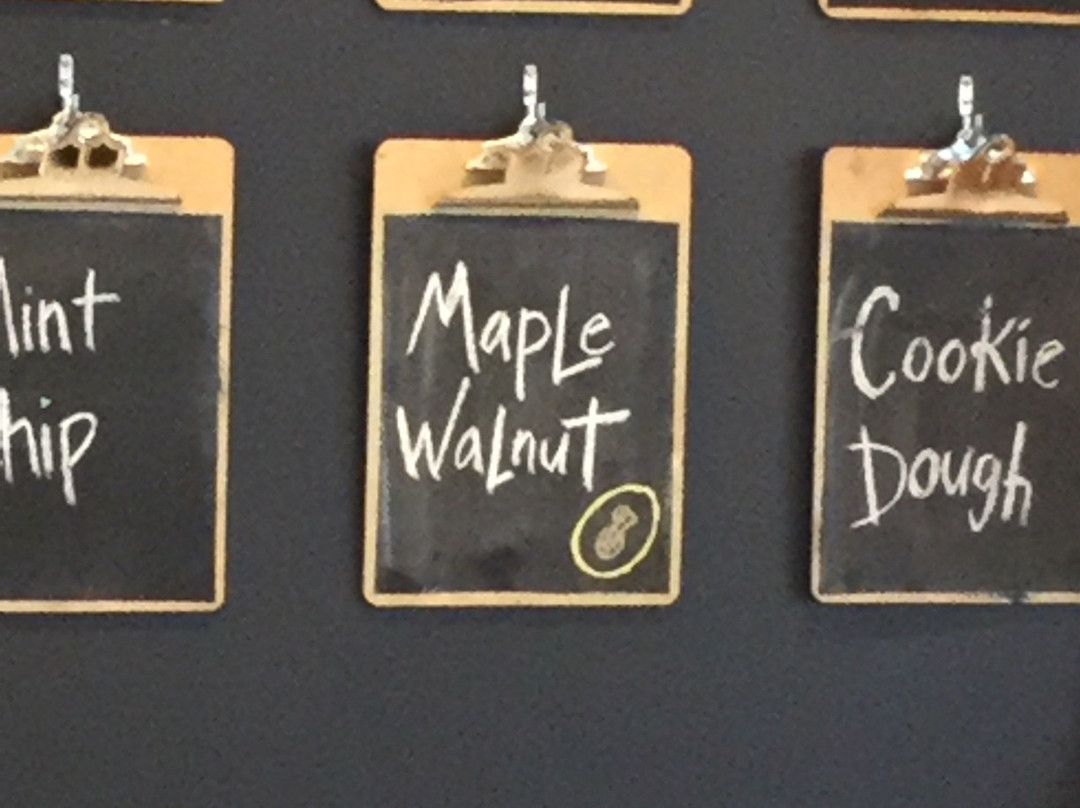 Mint
hip
Maple
Walnut
Cookie
Dough